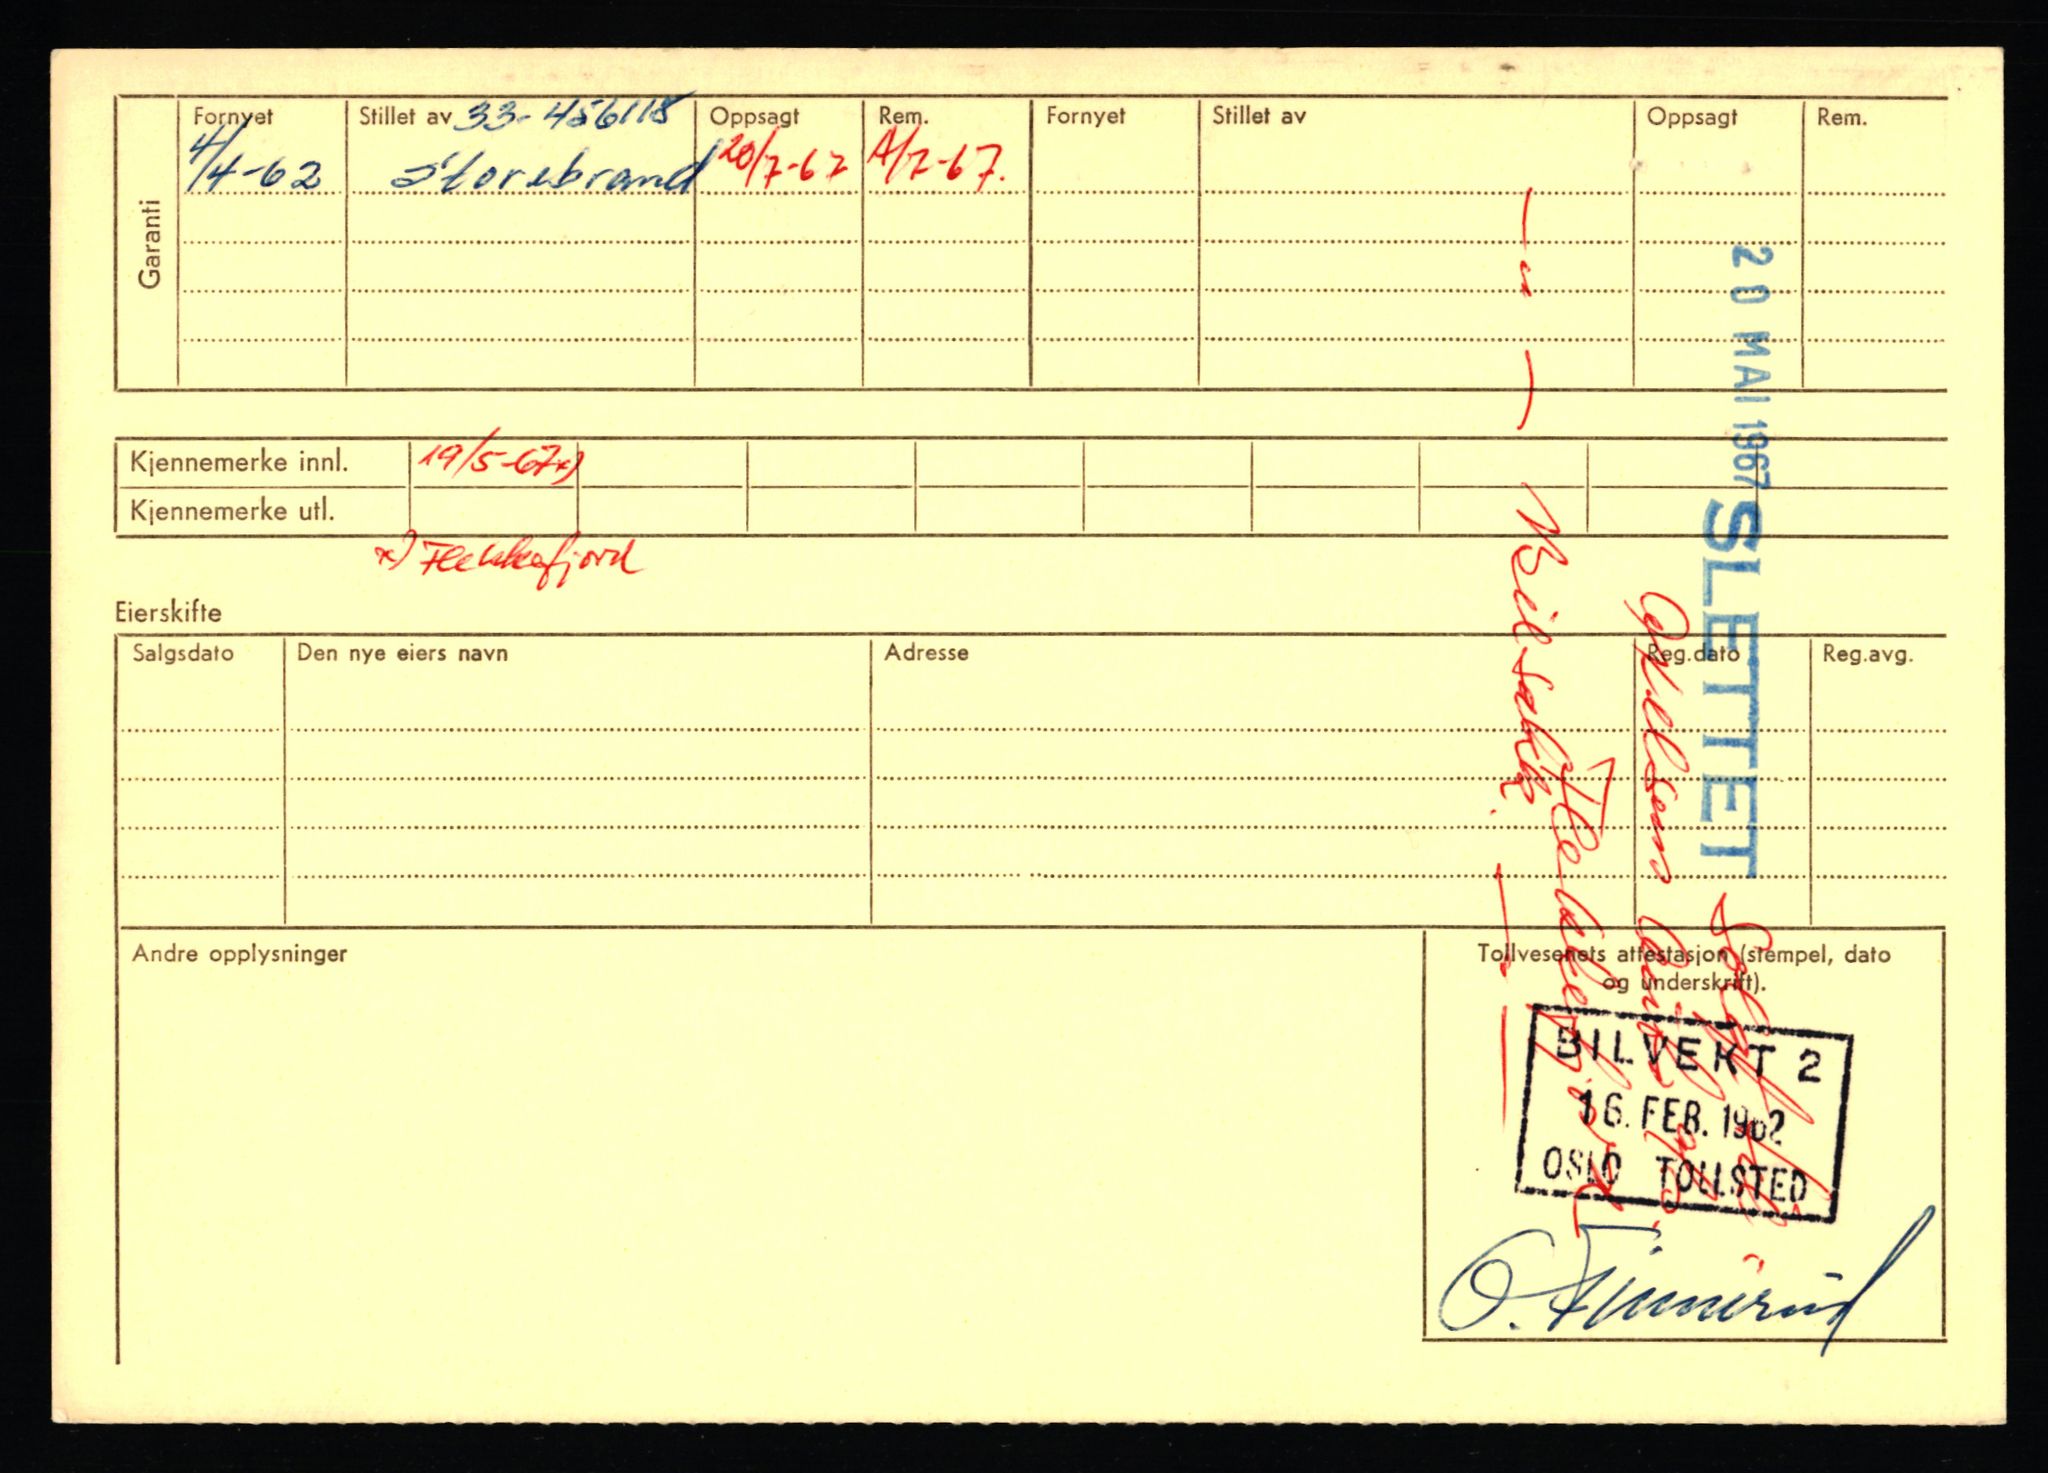 Garanti
Fornyet Stillet av 33-456118 Oppsagt Rem. Fornyet Stillet av Oppsagt Rem.
4/4-62 Storebrand 20/7-67 A/7-67.
— " —
20 MAI 1967 SLETTET
Kjennemerke innl. 19/5-67x)
Kjennemerke utl.
x) Flekkefjord
Eierskifte
Salgsdato Den nye eiers navn Adresse Reg.dato Reg.avg.
Bilsakk.
Flekkefjord
Andre opplysninger
Tollvesenets attestasjon (stempel, dato
og underskrift).
BILVEKT 2
16. FEB. 1962
OSLO TOLLSTED